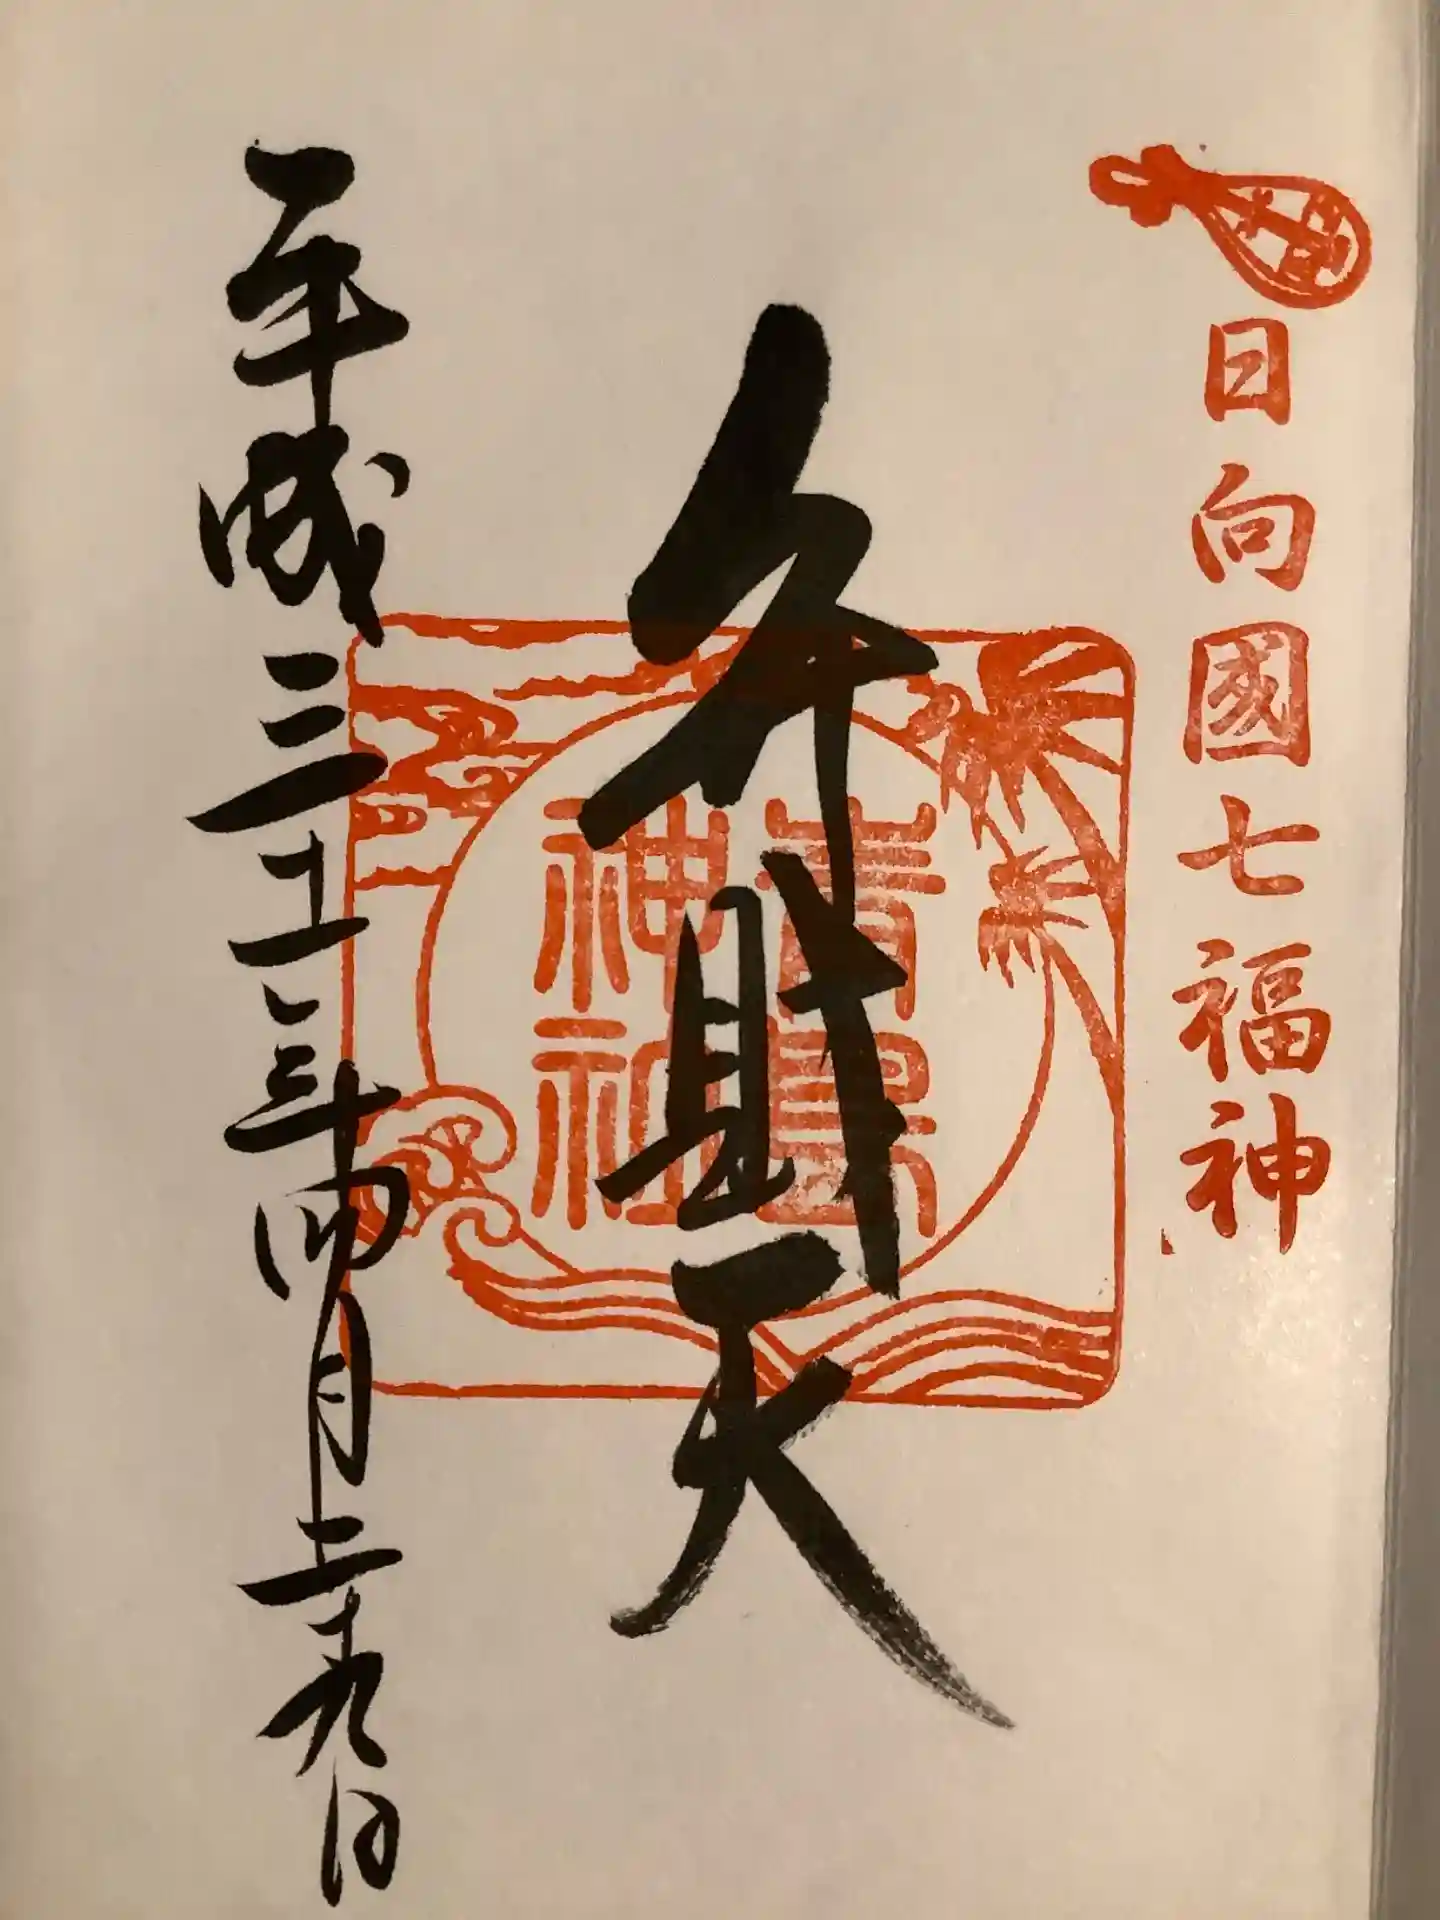 日向國七福神
弁財天
青島
神社
平成三十一年四月二十九日